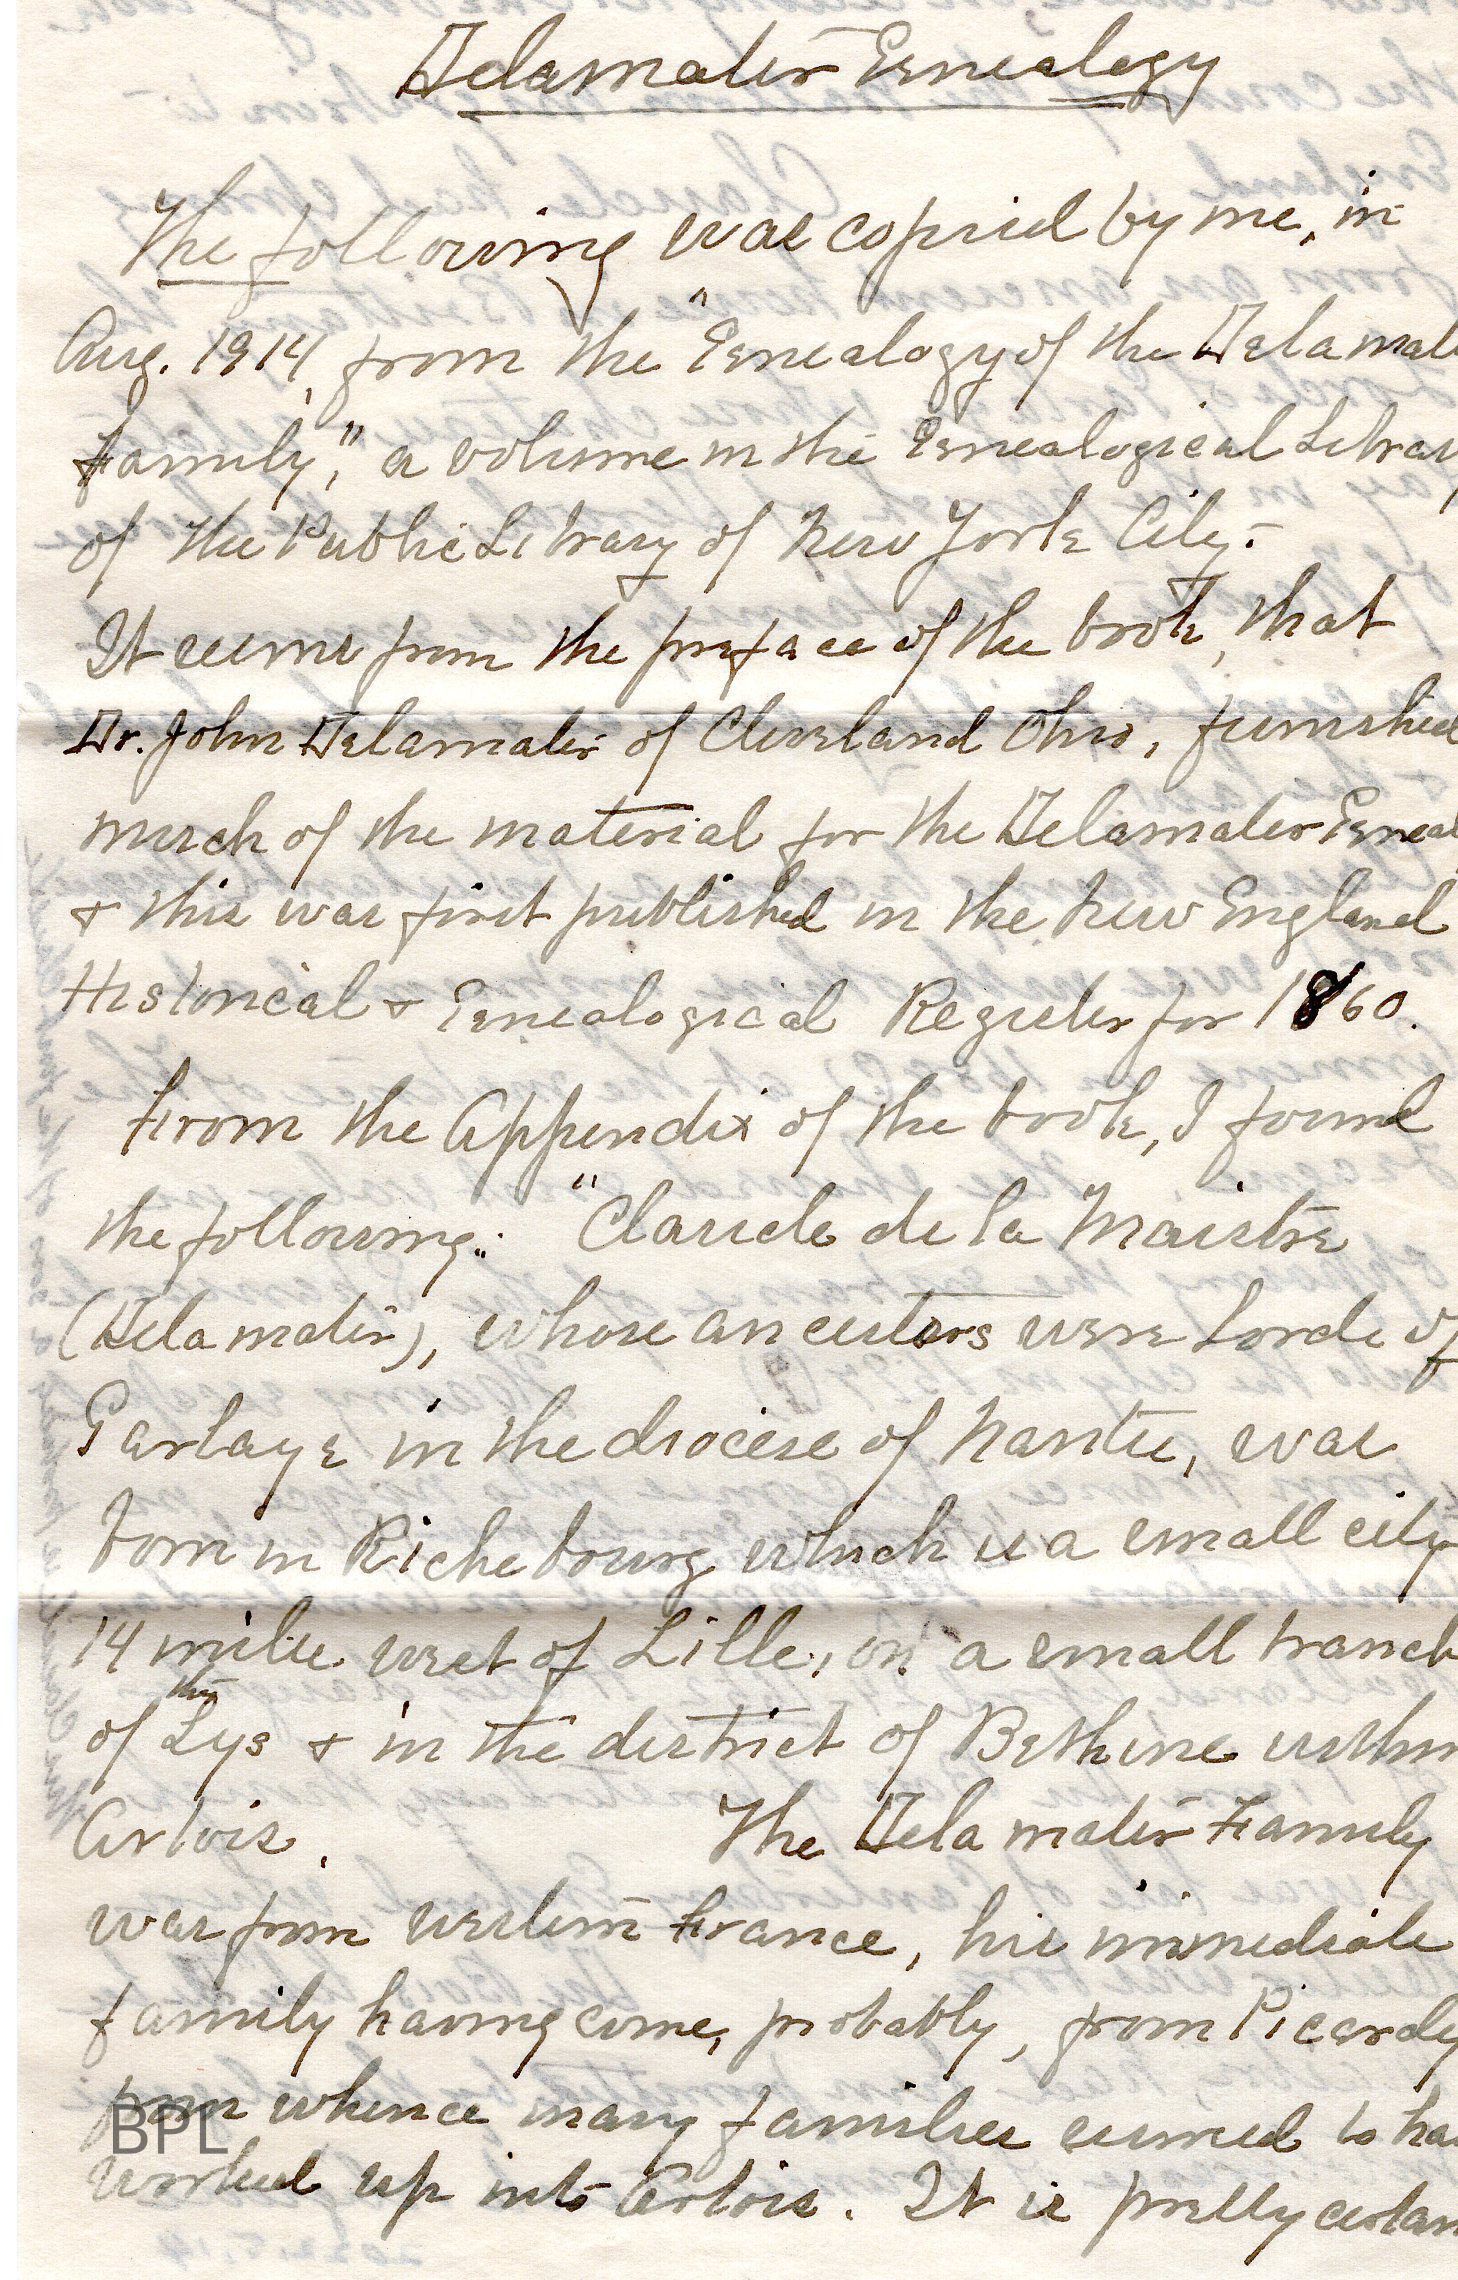 Delamater Genealogy
The following was copied by me, in
Aug. 1914, from the "Genealogy of the Delamate
Family", a volume in the Genealogical Library
of the Public Library of New York City.
It seems from the preface of the book, that
Dr. John Delamater of Cleveland Ohio, furnished
much of the material for the Delamater Geneal
& this was first published in the New England
Historical & Genealogical Register for 1860.
From the Appendix of the book, I found
the following: "Claude de la Maistre
(Delamater), whose ancestors were Lords of
Garlaye in the diocese of Nantes, was
born in Richebourg which is a small city
14 miles west of Lille, on a small branch
of the Lys & in the district of Bethune within
Artois. The Delamater Family
was from western France, his immediate
family having come, probably, from Picardy
from whence many families seemed to ha
worked up into Artois. It is pretty certain
BPL